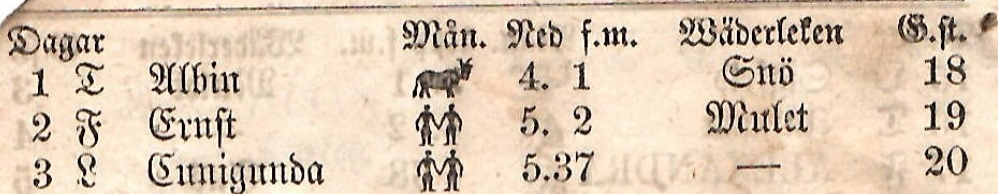 Dagar Mån. Ned f.m. Wäderleken G.st.
1 T Albin 4. 1 Snö 18
2 F Ernst 5. 2 Mulet 19
3 L Cunigunda 5.37 — 20